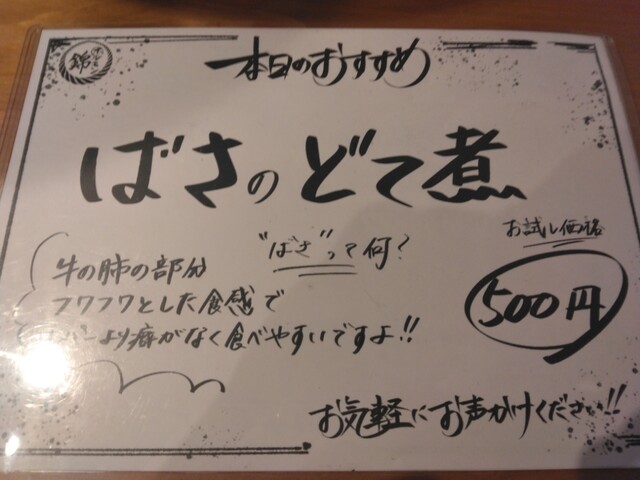 本日のおすすめ
ばさのどて煮
お試し価格
"ばさ"って何?
500円
牛の肺の部分
フワフワとした食感で
バーより癖がなく食べやすいですよ!!
お気軽にお声がけください!!